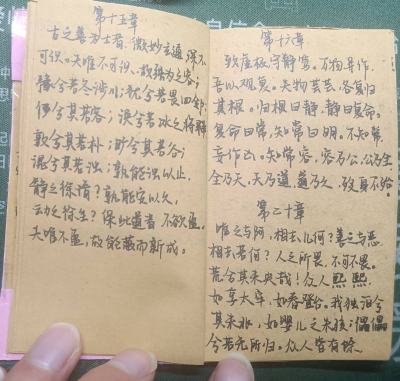 第十五章
古之善为士者，微妙玄通，深不
可识。夫唯不可识，故强为之容；
豫兮若冬涉川；犹兮若畏四邻；
俨兮其若客；涣兮若冰之将释；
敦兮其若朴；旷兮其若谷；
混兮其若浊；孰能浊以止，
静之徐清？孰能安以久，
动之徐生？保此道者不欲盈。
夫唯不盈，故能蔽而新成。
第十六章
致虚极，守静笃。万物并作，
吾以观复。夫物芸芸，各复归
其根。归根曰静，静曰复命。
复命曰常，知常曰明。不知常，
妄作凶。知常容，容乃公，公乃全
全乃天，天乃道，道乃久，殁身不殆。
第二十章
唯之与阿，相去几何？善之与恶
相去若何？人之所畏，不可不畏。
荒兮其未央哉！众人熙熙，
如享太牢，如春登台。我独泊兮
其未兆，如婴儿之未孩；儡儡
兮若无所归。众人皆有馀，